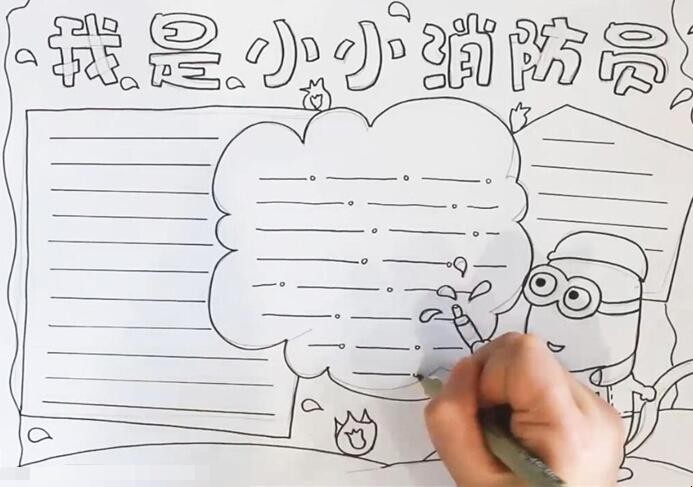 我是小小消防员